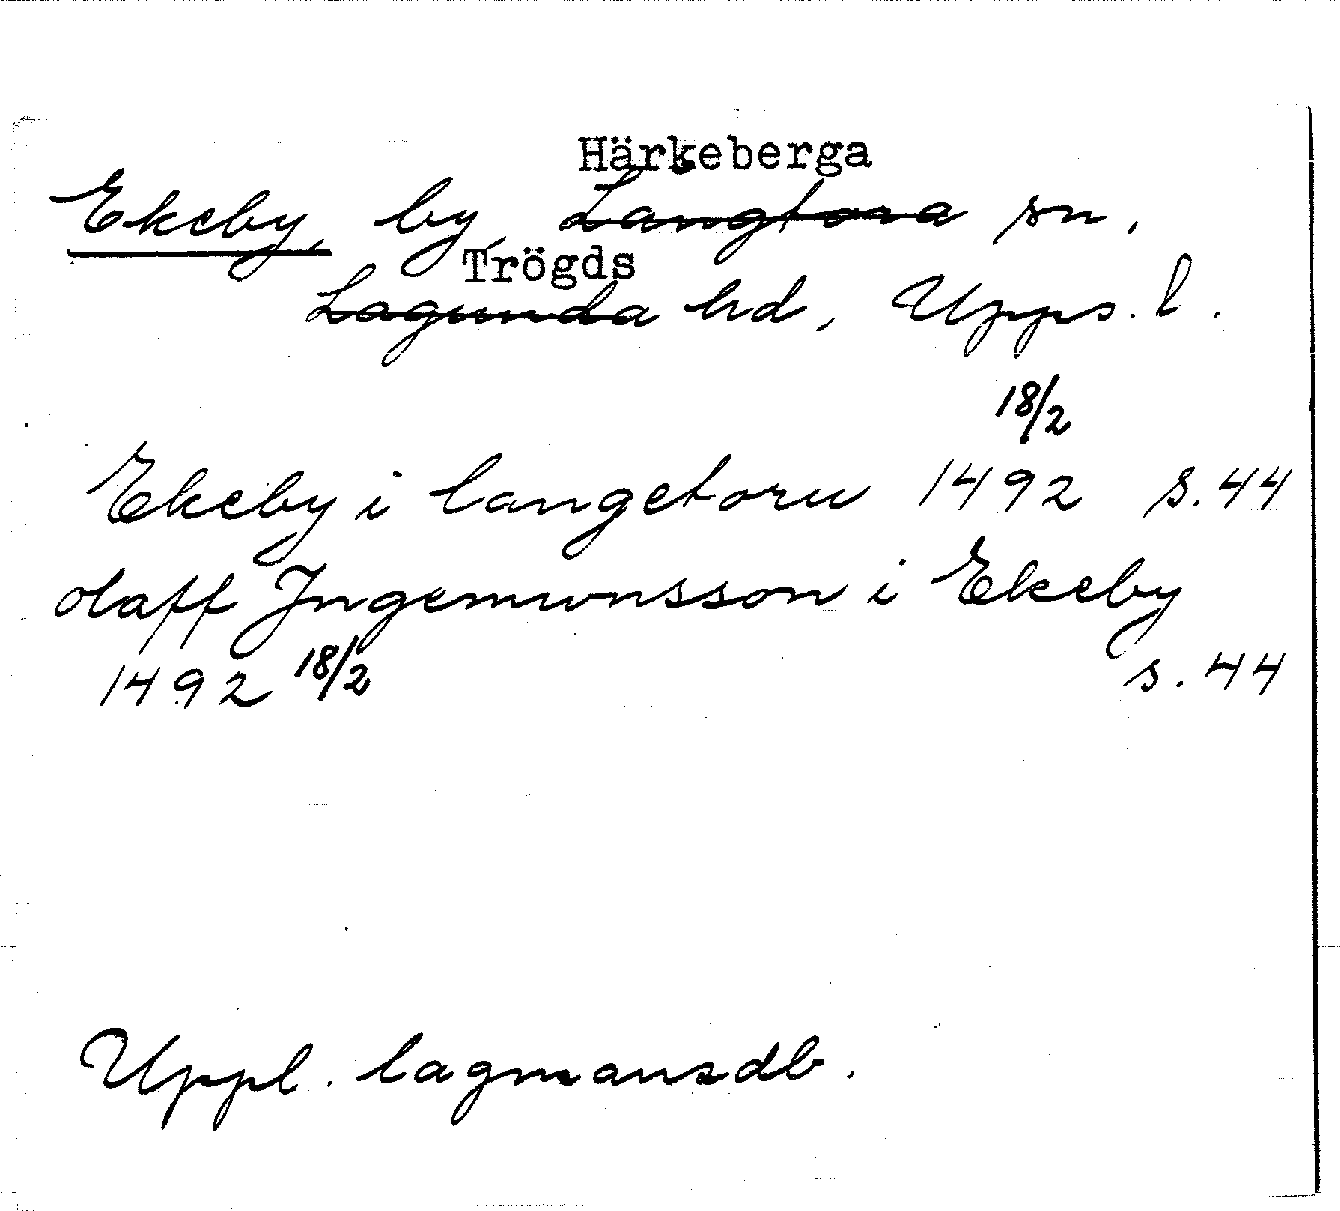 Härkeberga
Ekeby, by, Långtora sn,
Trögds
Lagunda hd, Upps. l.
18/2
Ekeby i langetoru 1492 s. 44
olaff Jngemunsson i Ekeby
1492 18/2 s. 44
Uppl. lagmansdb.